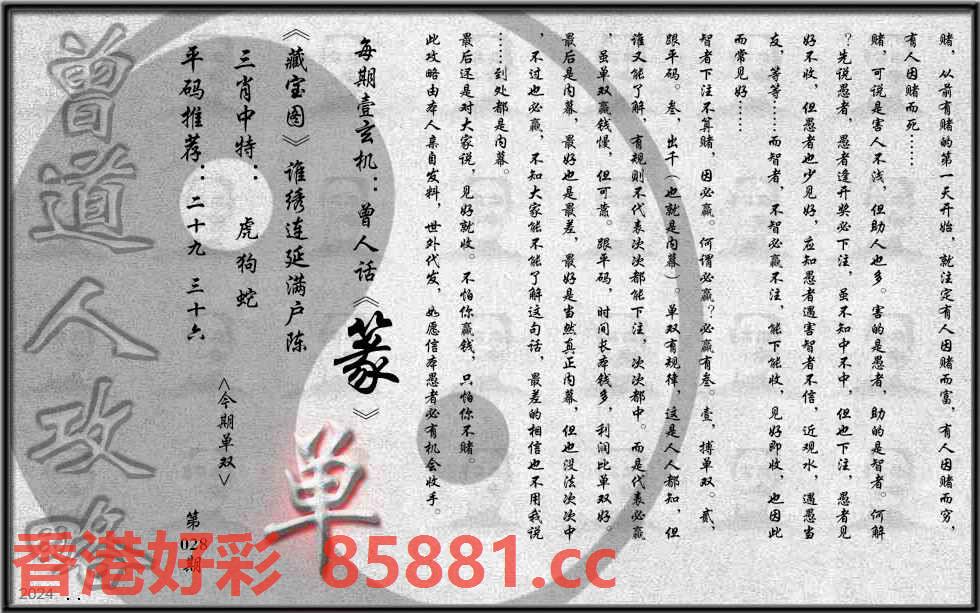 赌，从前有赌的第一天开始，就注定有人因赌而富，有人因赌而穷，
有人因赌而死……
赌，可说是害人不浅，但助人也多。害的是愚者，助的是智者。何解
？先说愚者，愚者逢开奖必下注，虽不知中不中，但也下注，愚者见
好不收，但愚者也少见好，应知愚者遇害智者不信，近观水，遇愚当
友，等等……而智者，不智必赢不注，能下能收，见好即收，也因此
而常见好……
智者下注不算赌，因必赢。何谓必赢？必赢有叁。壹，搏单双。贰，
跟平码。叁，出千（也就是内幕）。单双有规律，这是人人都知，但
谁又能了解，有规则不代表次次都能下注，次次都中。而是代表必赢
，虽单双赢钱慢，但可靠。跟平码，时间长本钱多，利润比单双好。
最后是内幕，最好也是最差，最好是当然真正内幕，但也没法次次中
，不过也必赢，不知大家能不能了解这句话，最差的相信也不用我说
……到处都是内幕。
最后还是对大家说，见好就收。不怕你赢钱，只怕你不赌。
此攻略由本人亲自发料，世外代发，如愿信本愚者必有机会收手。
每期壹玄机：曾人话《篆》
《藏宝图》谁绣连延满户陈
三肖中特：虎狗蛇
平码推荐：二十九 三十六
<今期单双>
单
第
028
期
曾道人攻略
香港好彩 85881.cc
2024